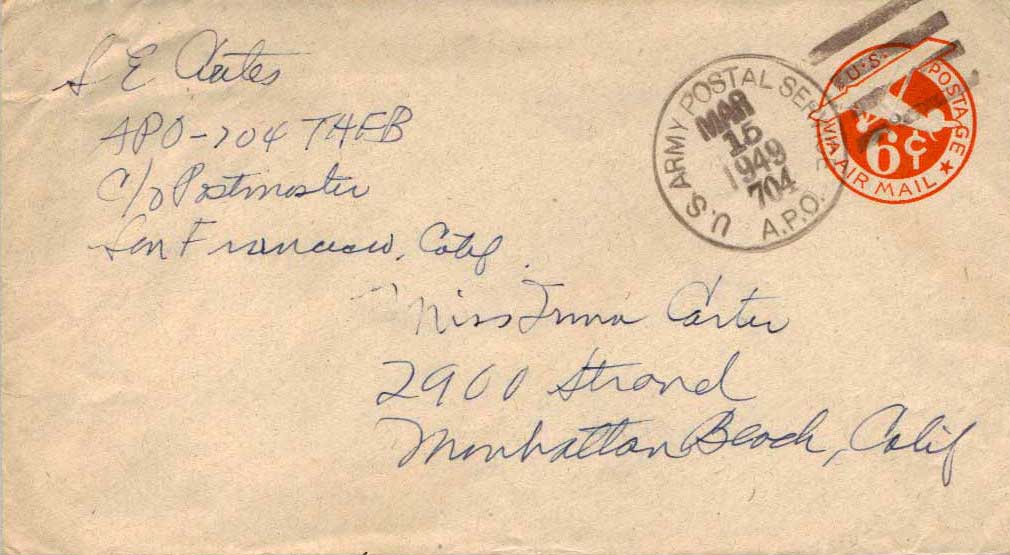 S E
APO-704 TAFB
C/o Postmaster
San Francisco, Calif.
U.S. ARMY POSTAL SERVICE
MAR
15
1949
704
A.P.O.
U.S. POSTAGE
6¢
VIA AIR MAIL
Miss Irma Carter
2900 Strand
Manhattan Beach, Calif